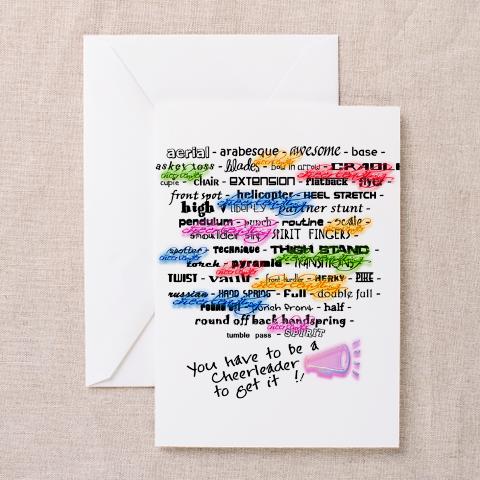 aerial - arabesque - awesome - base -
basket toss - blades - bow n arrow - CRADLE
cupie - CHAIR - EXTENSION - flatback - flyer
front spot - helicopter - HEEL STRETCH -
high V - LIBERTY - partner stunt -
pendulum - punch - routine - scale -
shoulder sit - SPIRIT FINGERS -
spotter - technique - THIGH STAND -
torch - pyramid - TRANSITIONS
TWIST - vault - front hurdler - HERKY - PIKE -
russian - HAND SPRING - full - double full -
round off - punch front - half -
round off back handspring -
tumble pass - SPIRIT
You have to be a
Cheerleader
to get it !!